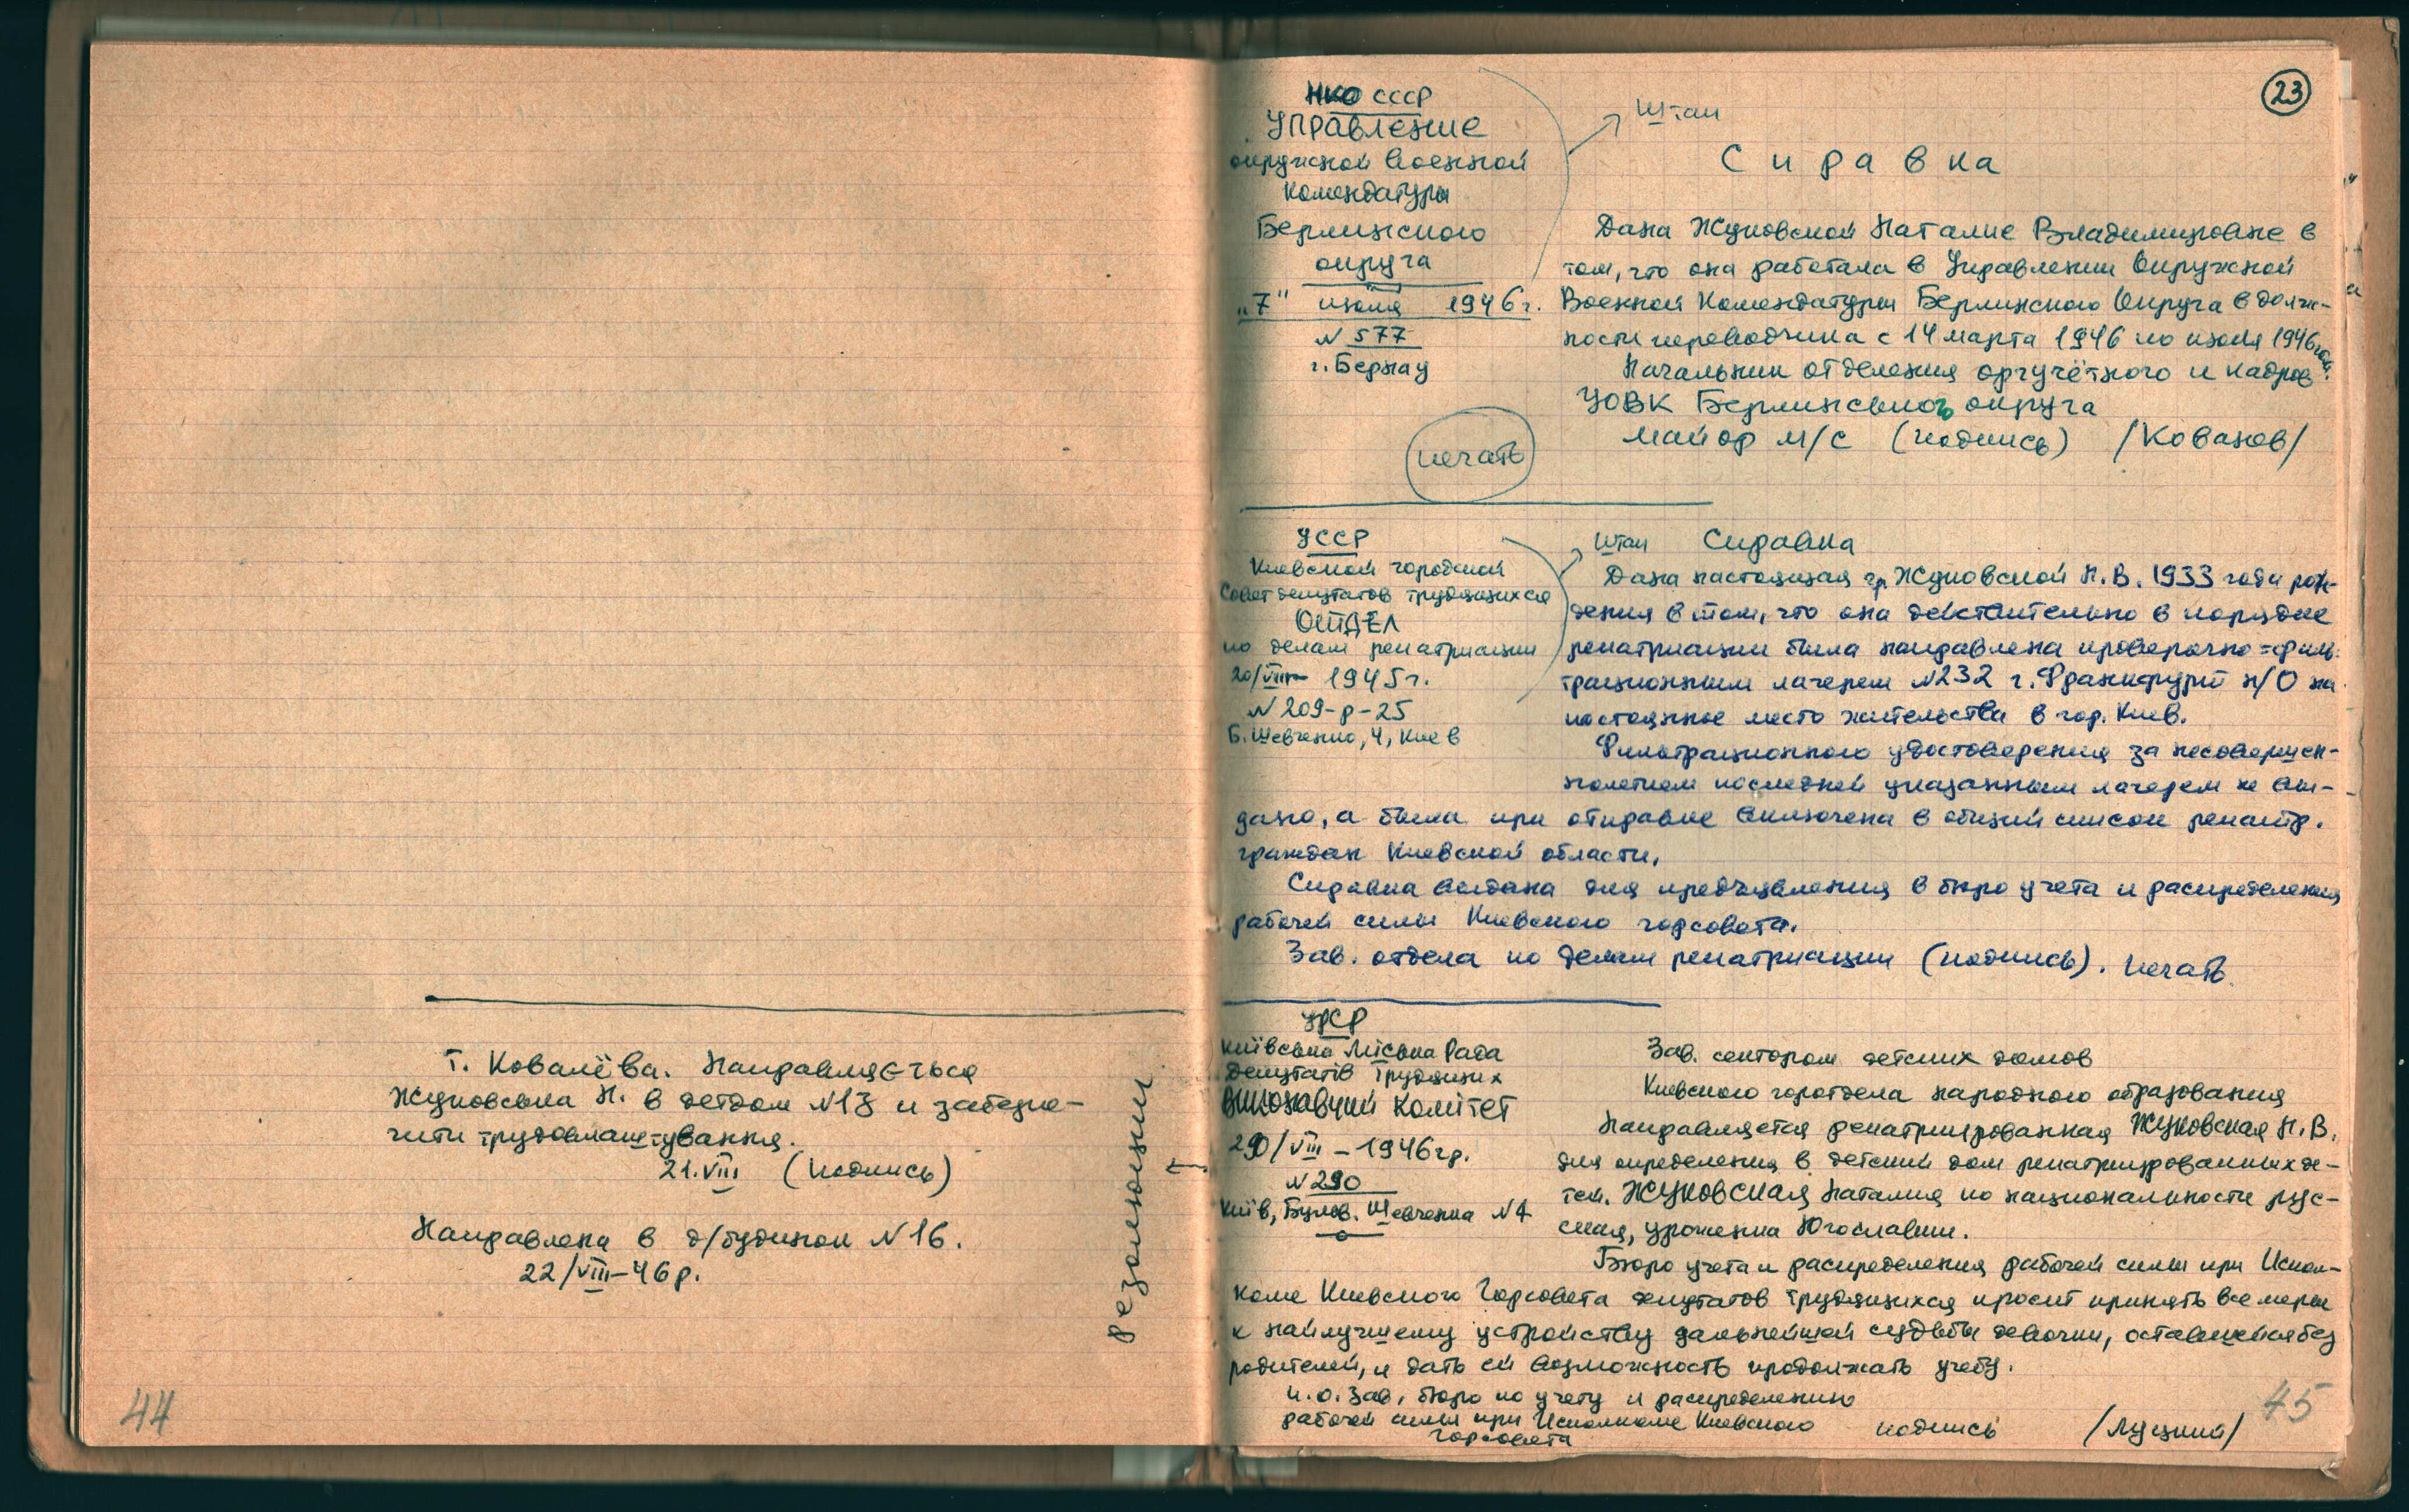 т. Ковалёва. Направляється
Жуковська Н. в детдом №13 и забезпе-
чити трудовлаштування.
21.VIII (подпись)
Направлена в д/будинок №16.
22/VIII-46р.
резолюции
44
23
НКО СССР
УПРАВЛЕНИЕ
окружной военной
комендатуры
Берлинского
округа
„7" июня 1946 г.
№ 577
г. Бернау
Штамп
Справка
Дана Жуковской Наталие Владимировне в
том, что она работала в Управлении Окружной
Военной Комендатуры Берлинского Округа в долж-
ности переводчика с 14 марта 1946 по июня 1946 год.
Начальник отделения оргучётного и кадров
УОВК Берлинского округа
майор м/с (подпись) /Кованов/
печать
УССР
Киевский городской
Совет депутатов трудящихся
ОТДЕЛ
по делам репатриации
20/VIII- 1945 г.
№ 209-р-25
Б. Шевченко, 4, Киев
Штамп Справка
Дана настоящая гр. Жуковской Н.В. 1933 года рож-
дения в том, что она действительно в порядке
репатриации была направлена проверочно=филь-
трационным лагерем №232 г. Франкфурт н/О на
постоянное место жительства в гор. Киев.
Фильтрационного удостоверения за несовершен-
нолетием последней указанным лагерем не вы-
дано, а была при отправке включена в общий список репатр.
граждан Киевской области.
Справка выдана для предъявления в бюро учета и распределения
рабочей силы Киевского горсовета.
Зав. отдела по делам репатриации (подпись). печать
УРСР
Київська Міська Рада
депутатів трудящих
Виконавчий комітет
20/VIII-1946 гр.
№ 290
Київ, Бульв. Шевченка №4
Зав. сектором детских домов
Киевского горотдела народного образования
Направляется репатриированная Жуковская Н.В.
для определения в детский дом репатриированных де-
тей. Жуковская Наталия по национальности рус-
ская, уроженка Югославии.
Бюро учета и распределения рабочей силы при Испол-
коме Киевского Горсовета депутатов трудящихся просит принять все меры
к найлучшему устройству дальнейшей судьбы девочки, оставшейся без
родителей, и дать ей возможность продолжать учебу.
и.о. Зав. бюро по учету и распределению
рабочей силы при Исполкоме Киевского
Горсовета подпись /Луцкий/
45